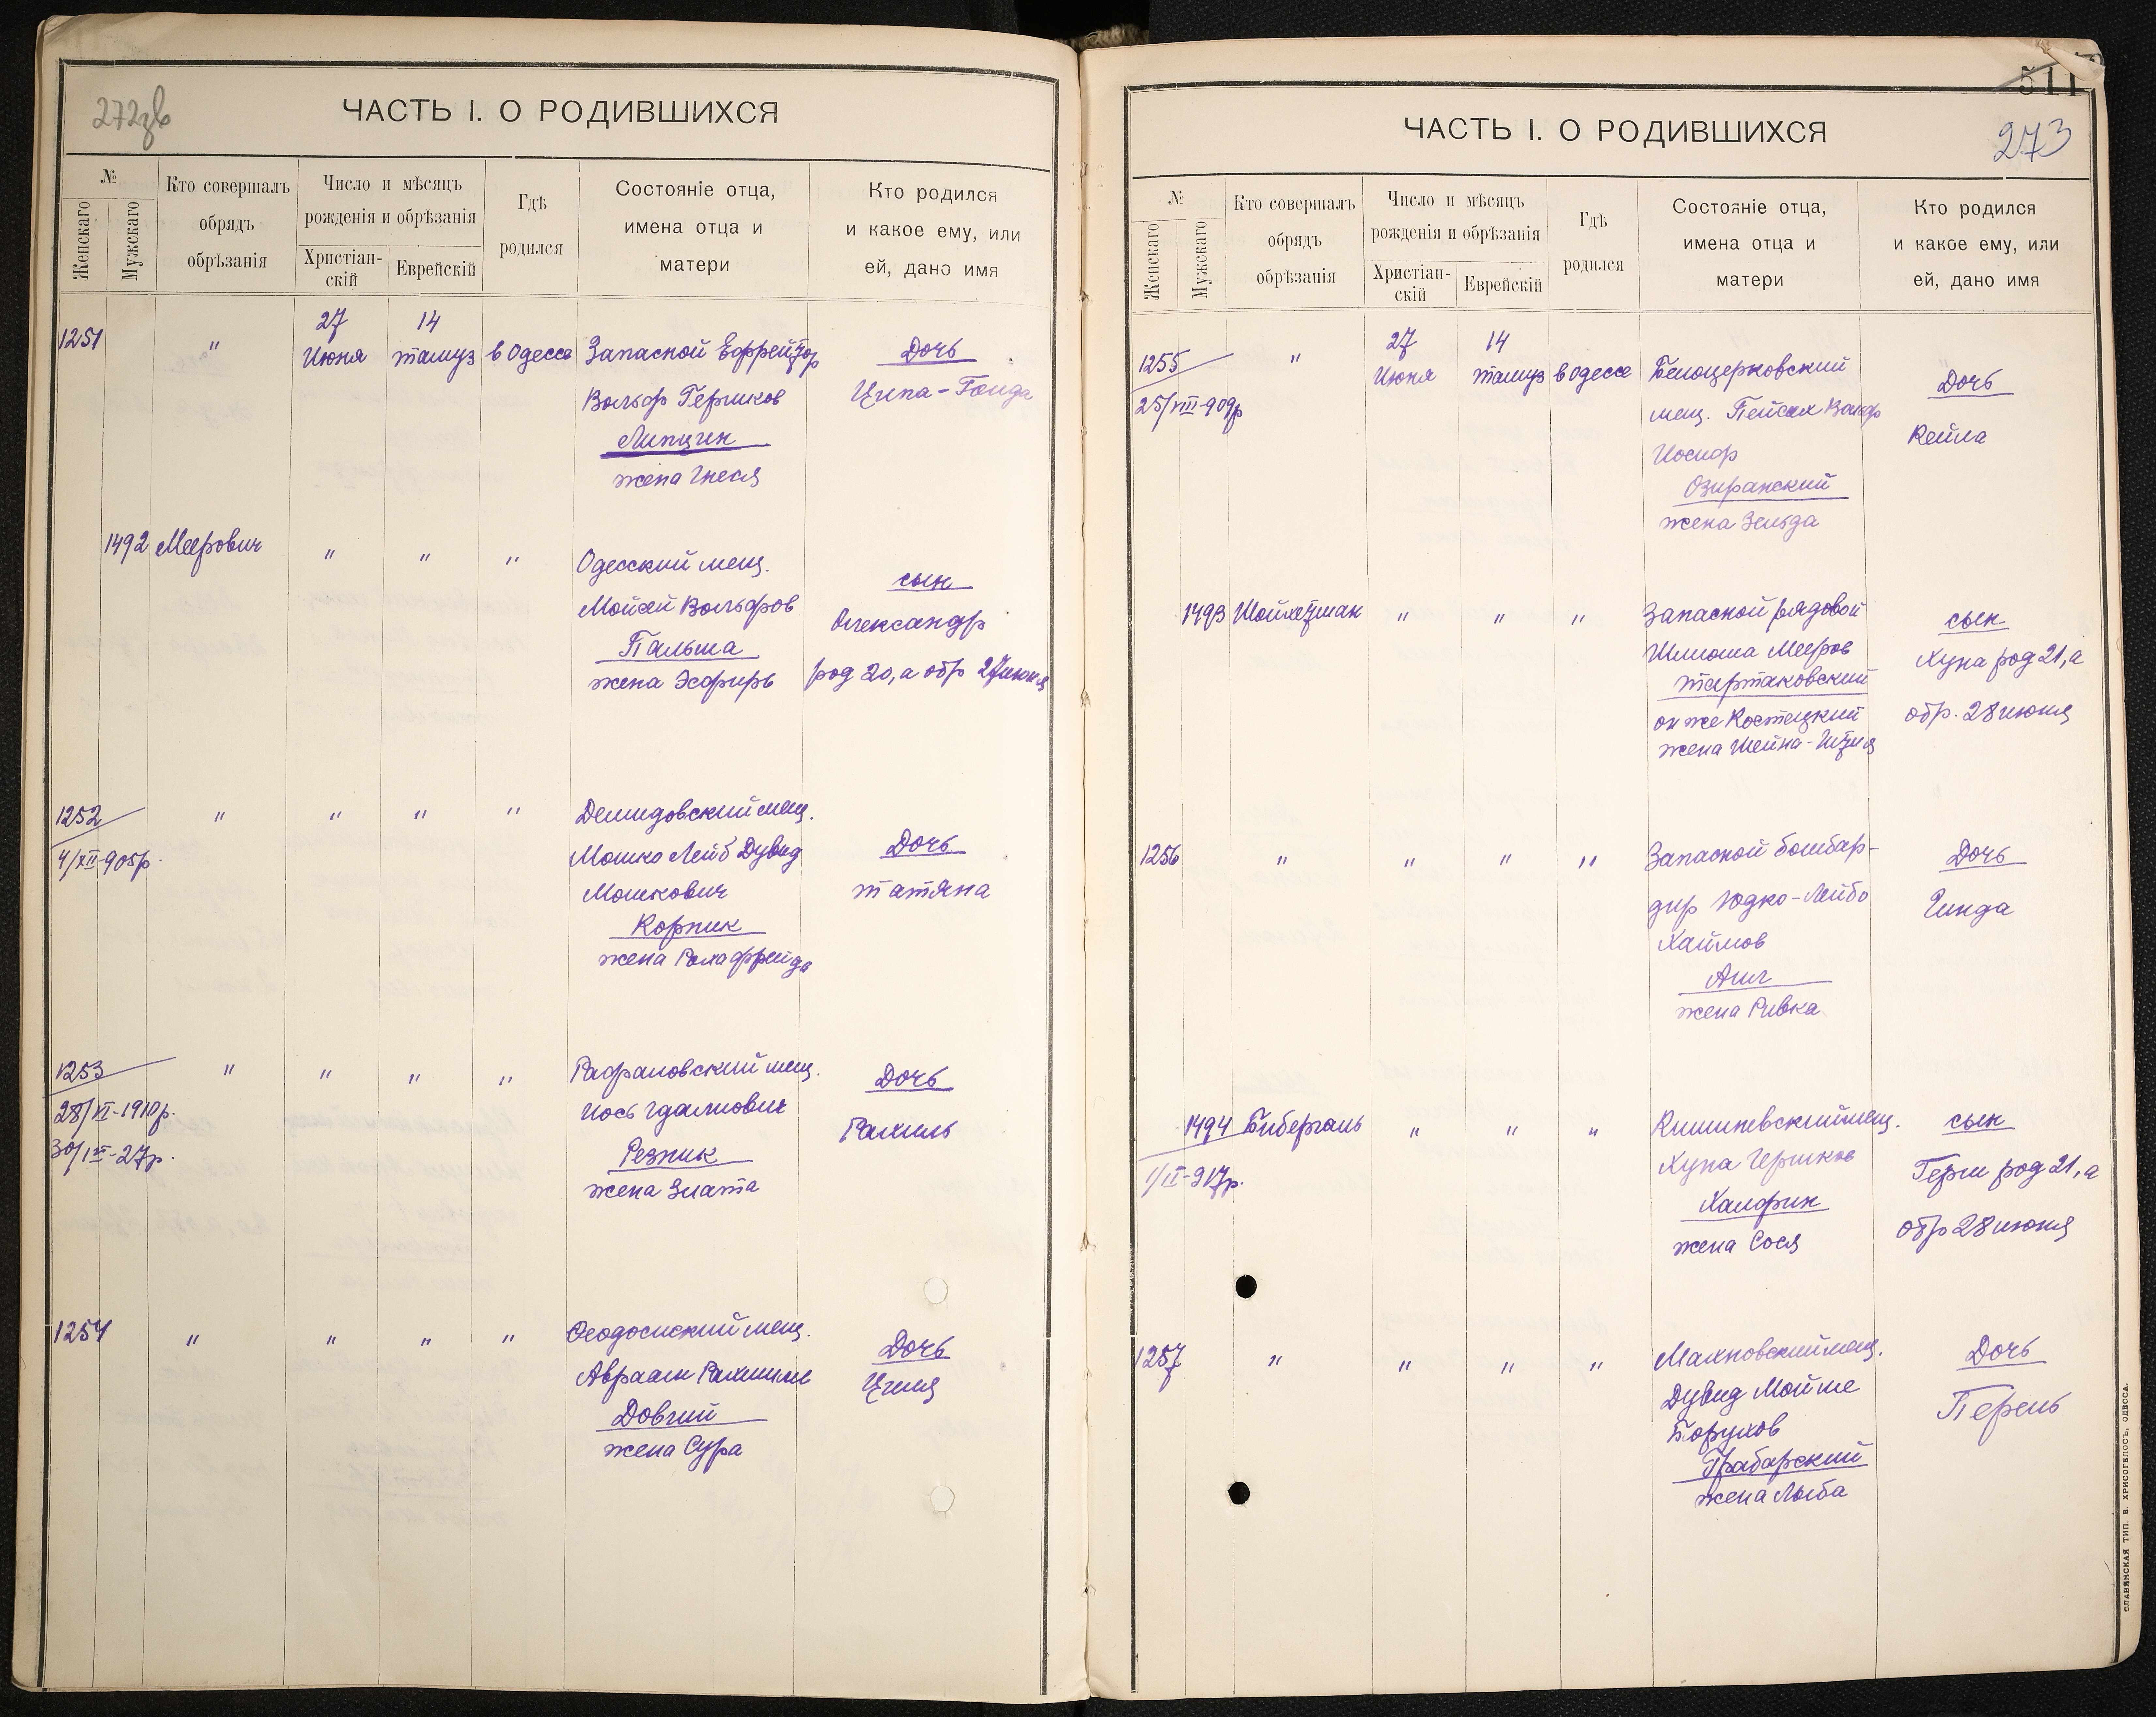 272зв
ЧАСТЬ I. О РОДИВШИХСЯ
№
Женскаго
Мужскаго
Кто совершалъ
обрядъ
обрѣзанія
Число и мѣсяцъ
рожденія и обрѣзанія
Христіан-
скій
Еврейскій
Гдѣ
родился
Состояніе отца,
имена отца и
матери
Кто родился
и какое ему, или
ей, дано имя
1251 " 27 Июня 14 тамуз в Одессе Запасной Ефрейтор
Вольф Гершков
Липцин
жена Гнеся
Дочь
Ципа-Гоида
1492 Меерович " " " Одесский мещ.
Мойсей Вольфов
Пальша
жена Эсфирь
сын
Александр
род 20, а обр 27 июня
1252 " " " " Демидовский мещ.
4/XII-905р.
Мошко Лейб Дувид
Мошкович
Корпик
жена Рохафрейда
Дочь
Татяна
1253 " " " " Рафаловский мещ.
28/VI-1910р.
Иось Гдалиович
Резник
жена Злата
Дочь
Рахиль
1254 " " " " Феодосиский мещ.
Авраам Рахмиил
Довгий
жена Сура
Дочь
Циля
511
273
ЧАСТЬ I. О РОДИВШИХСЯ
№
Женскаго
Мужскаго
Кто совершалъ
обрядъ
обрѣзанія
Число и мѣсяцъ
рожденія и обрѣзанія
Христіан-
скій
Еврейскій
Гдѣ
родился
Состояніе отца,
имена отца и
матери
Кто родился
и какое ему, или
ей, дано имя
1255 " 27 Июня 14 тамуз в Одессе Белоцерковский
25/VIII-909р
мещ. Пейсах Вольф
Иосиф
Озиранский
жена Зельда
Дочь
Кейла
1493 Шойхетман " " " Запасной рядовой
Шлиома Мееров
Тартаковский
он же Костецкий
жена Шейна-
сын
Хуна род 21, а
обр. 28 июня
1256 " " " " Запасной бомбар-
дир Юдко-Лейбо
Хаймов
жена Ривка
Дочь
Гинда
1494 Бибергаль " " " Кишиневский мещ.
1/II-917р.
Хуна Гершков
Халфин
жена Сося
сын
Герш род 21, а
обр 28 июня
1257 " " " " Махновский мещ.
Дувид Мойше
Борухов
Грабарский
жена Люба
Дочь
Перель
СЛАВЯНСКАЯ ТИП. Н. ХРИСОГЕЛОСЪ, ОДЕССА.